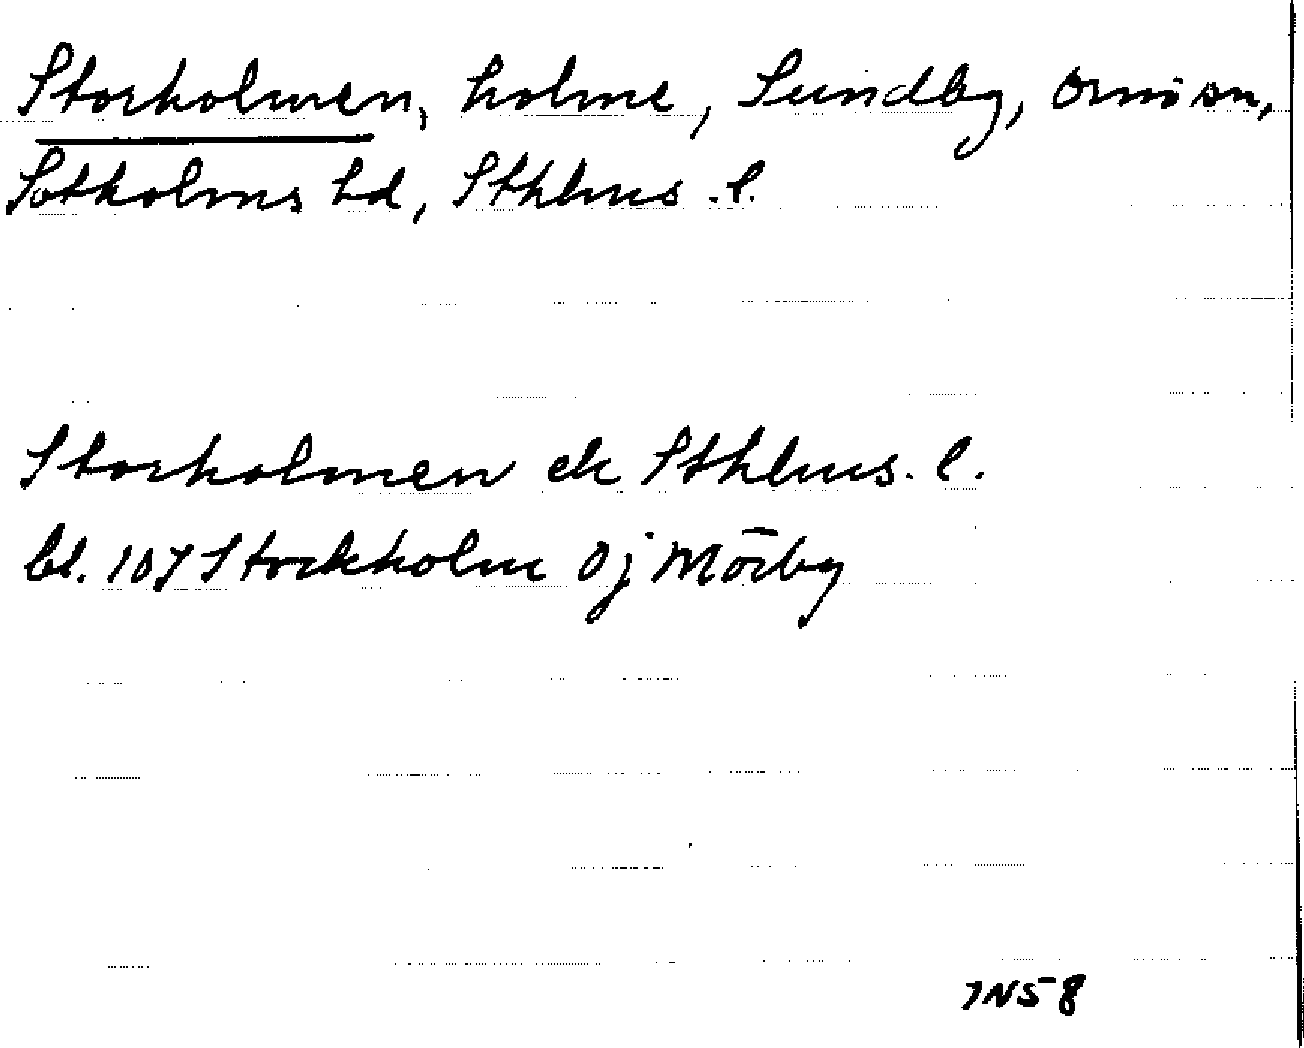 Storholmen, holme, Sundby, Ornö sn,
Sotholms hd, Sthlms l.
Storholmen ek Sthlms. l.
bl. 107 Stockholm Oj Mörby
7NS 8